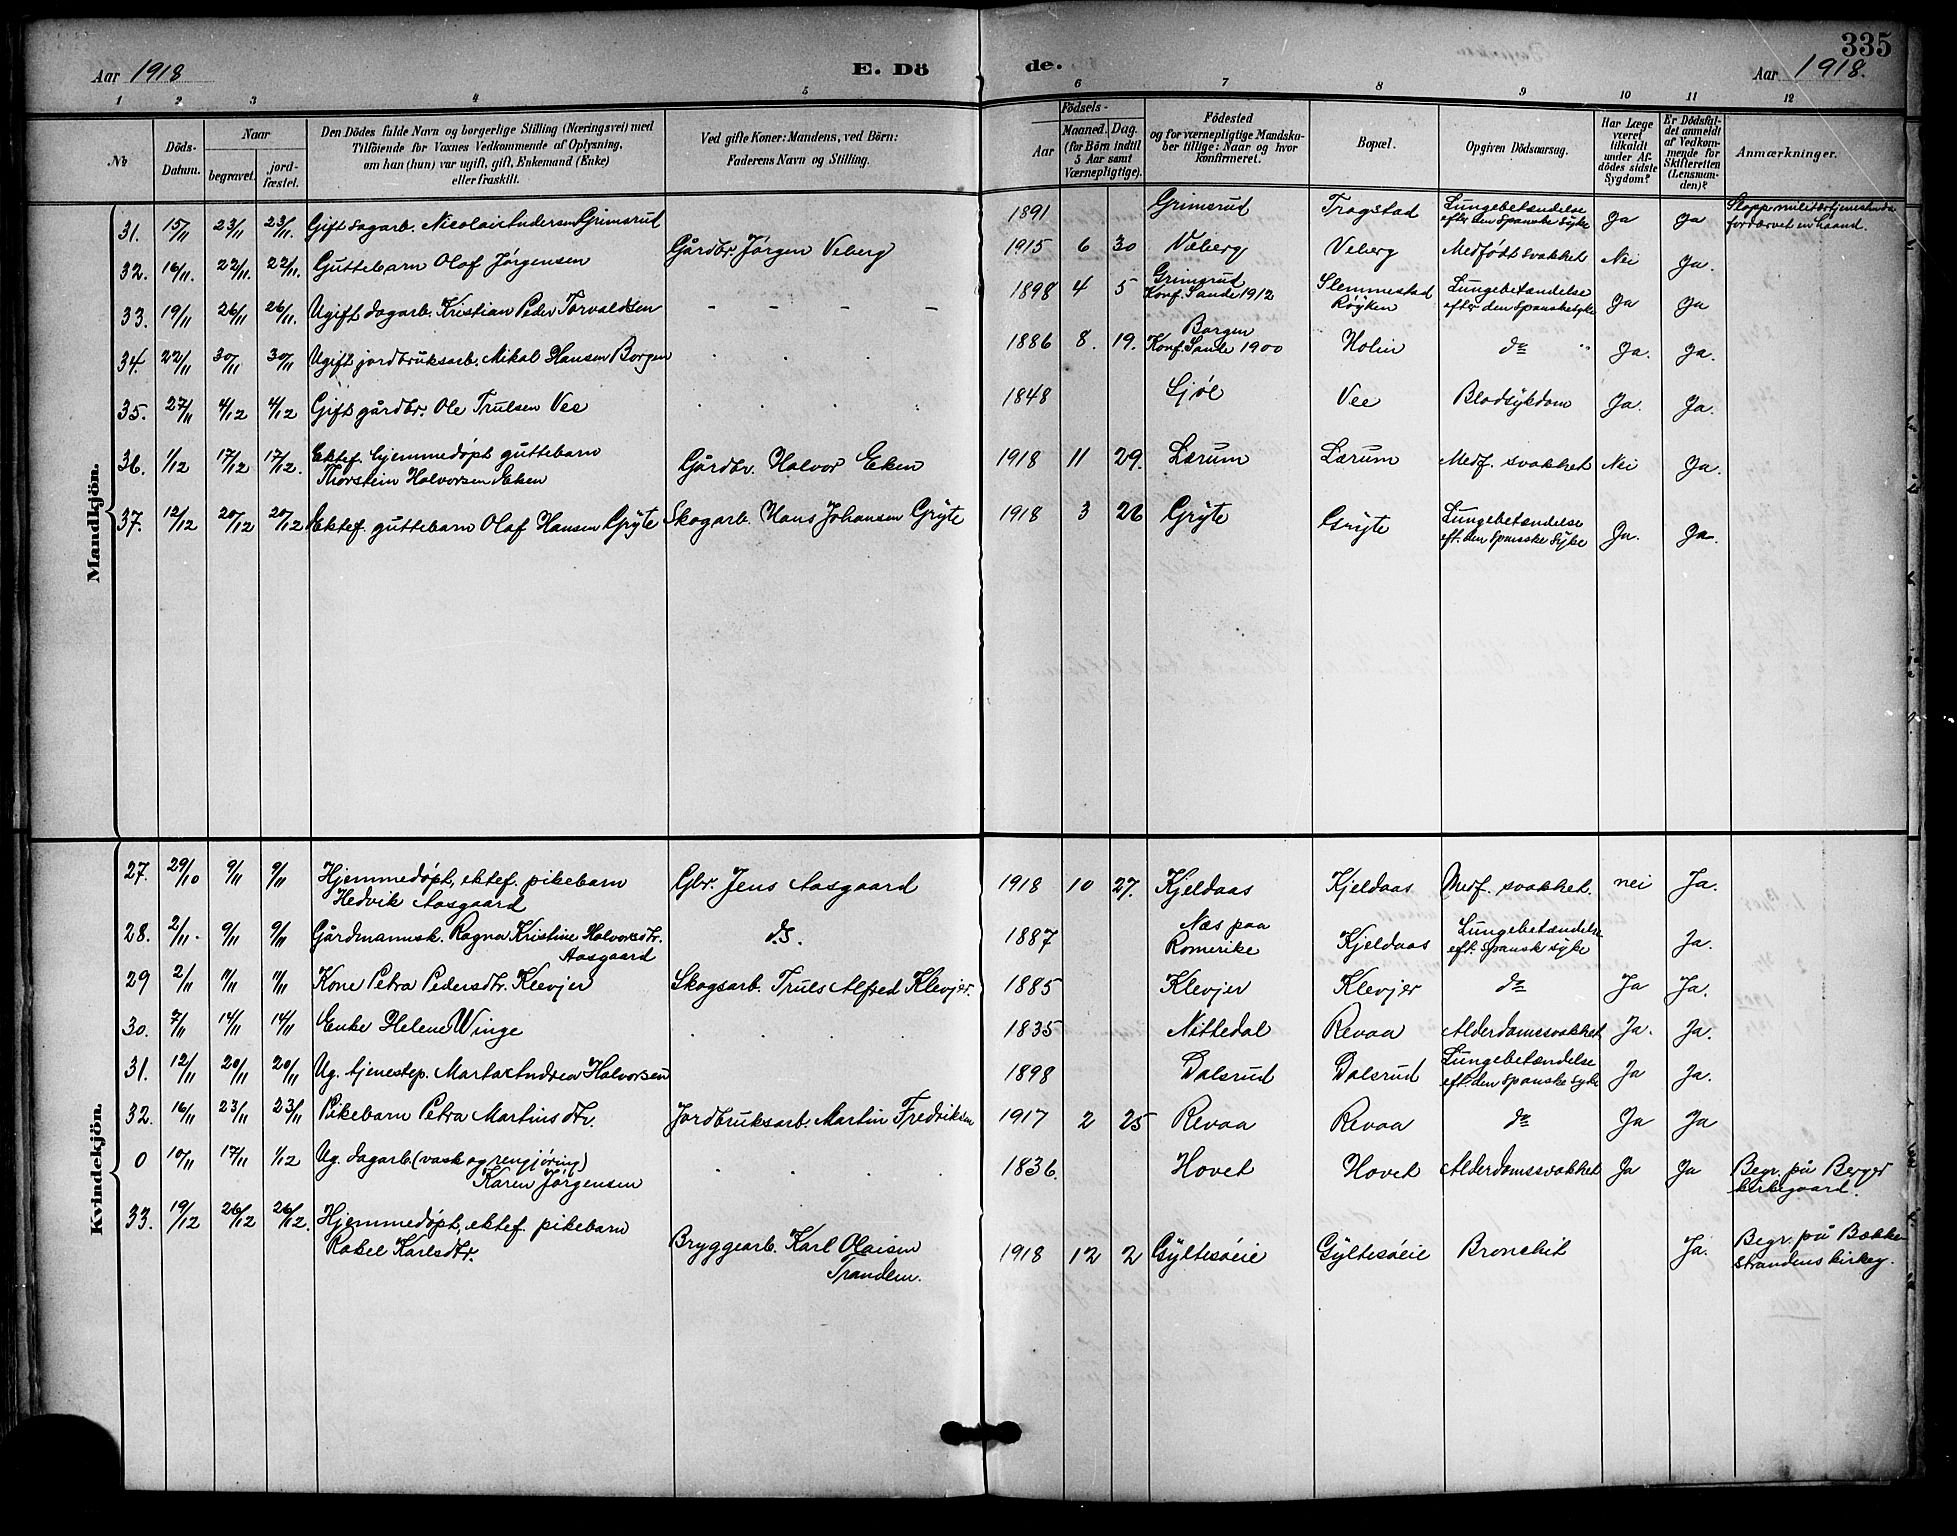 335
Aar 1918
E. Dö
de.
Aar 1918.
1 2 3 4 5 6 7 8 9 10 11 12
No
Döds-Datum.
Naar
begravet.
jord-fæstet.
Den Dödes fulde Navn og borgerlige Stilling (Næringsvei) med
Tilföiende for Voxnes Vedkommende af Oplysning,
om han (hun) var ugift, gift, Enkemand (Enke)
eller fraskilt.
Ved gifte Koner: Mandens, ved Börn:
Faderens Navn og Stilling.
Födsels-
Aar
Maaned. Dag.
(for Börn indtil
5 Aar samt
Værnepligtige).
Födested
og for værnepligtige Mandska-
ber tillige: Naar og hvor
konfirmeret.
Bopæl.
Opgiven Dödsaarsag.
Har Læge
været
tilkaldt
under Af-
dödes sidste
Sygdom?
Er Dödsfal-
det anmeldt
af Vedkom-
mende for
Skifteretten
(Lensman-
den)?
Anmærkninger.
Mandkjön.
31. 15/11 23/11 23/11. Gift dagarb. Nicolai Andersen Grimsrud 1891 Grimsrud Trogstad Lungebetændelse efter den Spanske Syke Ja Ja Slapp militærtjeneste da fordærvet en haand.
32. 16/11. 22/11. 22/11. Guttebarn Olaf Jørgensen Gårdbr. Jörgen Veberg 1915 6 30 Væberg Veberg Medfødt svakhet Nei Ja.
33. 19/11 26/11 26/11. Ugift dagarb. Kristian Peder Torvaldsen - - - - 1898 4 5 Grimsrud Konf. Sande 1912 Slemmestad Røyken Lungebetændelse efter den Spanske syke Ja Ja
34. 22/11 30/11 30/11 Ugift jordbruksarb. Mikal Hansen Borgen 1886 8. 19. Borgen Konf. Sande 1900 Holm do " Ja. Ja.
35. 27/11 4/12 4/12 Gift gårdbr. Ole Trulsen Vee 1848 Sjøl Vee Blodsykdom Ja. Ja.
36. 1/12 17/12 17/12. Ektef. hjemmedøpt guttebarn Thorstein Halvorsen Eken Gårdbr. Halvor Eken 1918 11 29. Lærum Lærum Medf. svakhet Nei Ja.
37. 12/12 20/12 20/12 Ektef. guttebarn Olaf Hansen Gryte Skogarb. Hans Johansen Gryte 1918 3 26 Gryte Gryte Lungebetændelse eft. den Spanske Syke Ja. Ja.
Kvindekjön.
27. 29/10 9/11 9/11 Hjemmedøpt, ektef. pikebarn Hedvik Aasgaard Gbr. Jens Aasgaard 1918 10 27. Kjeldaas Kjeldaas Medf. svakhet. nei Ja.
28. 2/11. 9/11 9/11 Gårdmannsk. Ragna Kristine Halvorsdtr. Aasgaard d.s. 1887 Næs paa Romerike Kjeldaas Lungebetændelse eft. Spansk syke Ja.
29 2/11 7/11 7/11 Kone Petra Pedersdtr. Klevjer Skogsarb. Truls Alfred Klevjer. 1885 Klevjer Klevjer do Ja Ja.
30. 7/11 14/11 14/11 Enke Helene Winge 1835 Nittedal Revaa Alderdomssvakhet Ja. Ja.
31. 12/11 20/11 20/11 Ug. tjenestep. Marta Andrea Halvorsen 1898 Dalsrud Dalsrud Lungebetændelse eft. den Spanske Syke Ja Ja.
32. 16/11 23/11 23/11 Pikebarn Petra Martinsdtr. Jordbruksarb. Martin Fredriksen 1917 2 25 Revaa Revaa do Ja Ja
0 10/11 17/11 1/12 Ug. dagarb. (vask og rengjøring) Karen Jørgensen 1836. Hovet Hovet Alderdomssvakhet Ja Ja Begr. på Berger kirkegaard.
33. 19/12 26/12 26/12. Hjemmedøpt, ektef. pikebarn Rakel Karlsdtr. Bryggearb. Karl Olaisen Trandem. 1918 12 2 Gyltesøeie Gyltesøeie Bronchit Ja. Begr. på Bakke-strandens kirkeg.